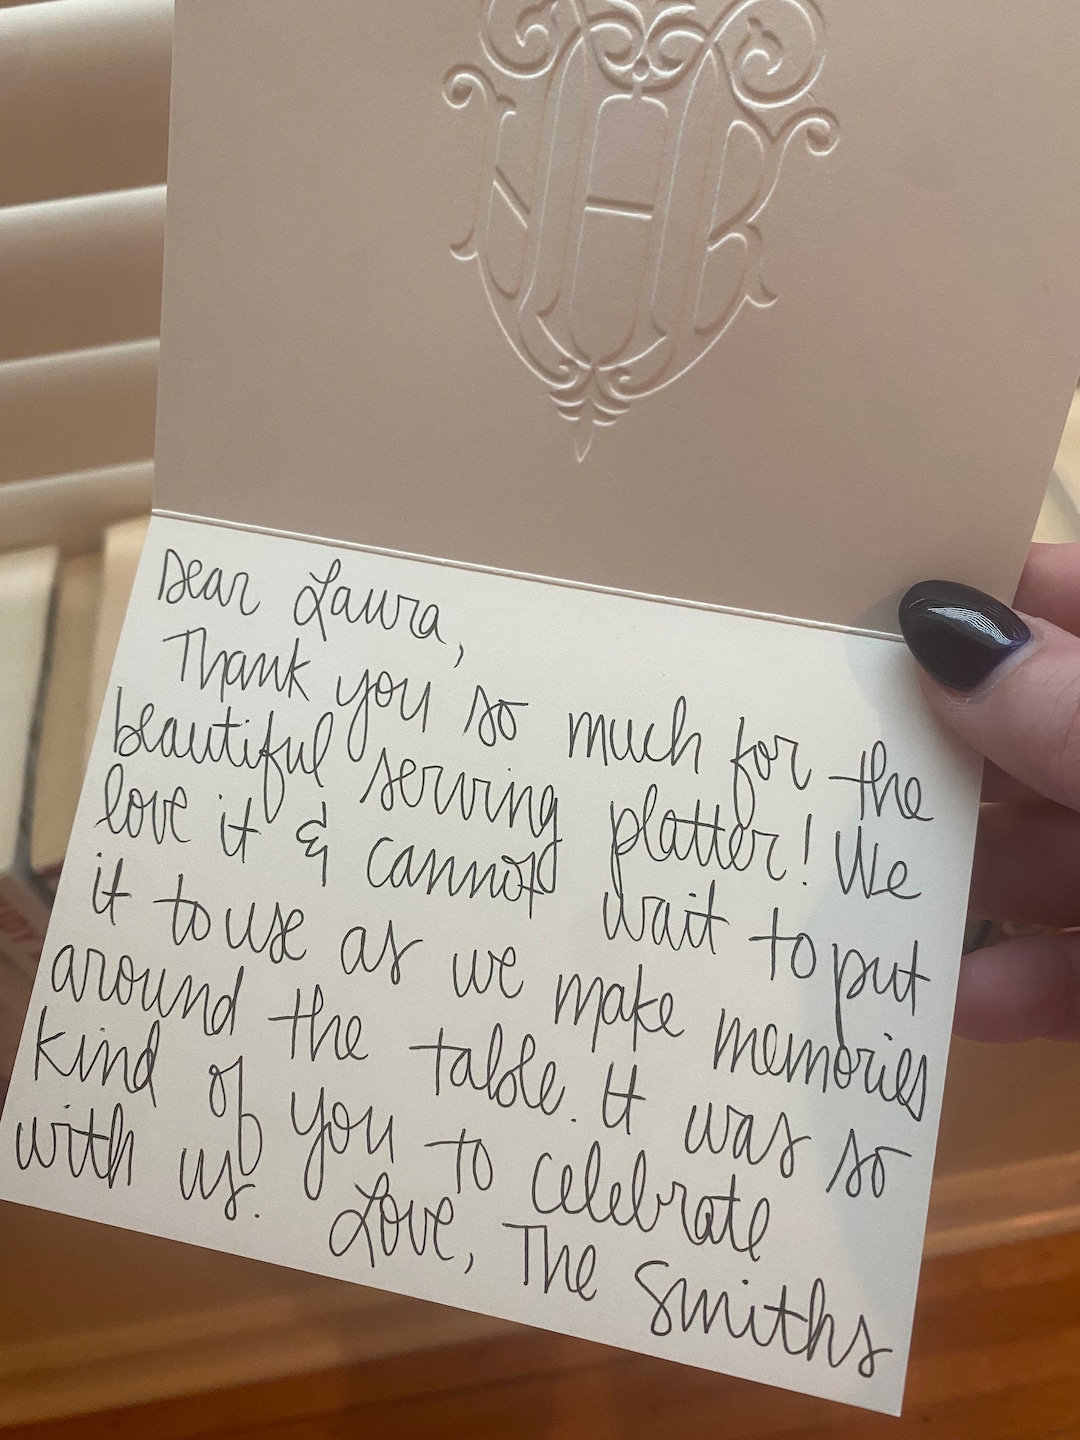 NHB
Dear Laura,
Thank you so much for the
beautiful serving platter! We
love it & cannot wait to put
it to use as we make memories
around the table. It was so
kind of you to celebrate
with us. Love, The Smiths